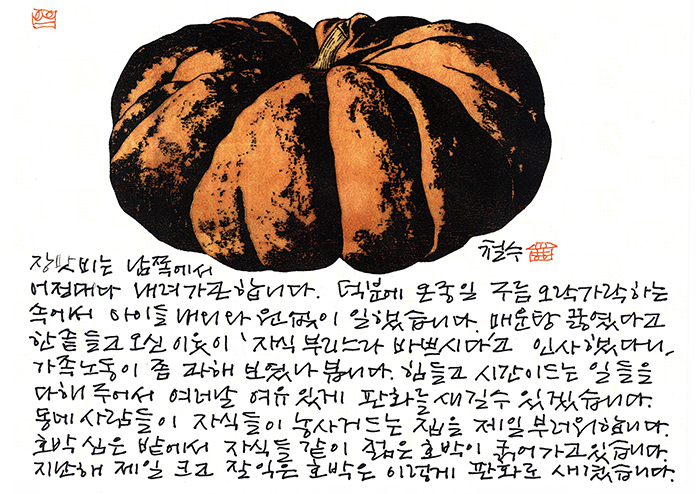 철수
장맛비는 남쪽에서
어정대다 내려가곤 합니다. 덕분에 온종일 구름 오락가락하는
속에서 아이들 내외와 원없이 일했습니다. 매운탕 끓였다고
한솥 들고 오신 이웃이 '자식 부리느라 바쁘시다'고 인사했다니,
가족노동이 좀 과해 보였나 봅니다. 힘들고 시간이 드는 일들을
다해 주어서 여러날 여유있게 판화를 새길수 있겠습니다.
동네사람들이 자식들이 농사거드는 집을 제일 부러워합니다.
호박 심은 밭에서 자식들 같이 젊은 호박이 굵어가고있습니다.
지난해 제일 크고 잘익은 호박은 이렇게 판화로 새겼습니다.